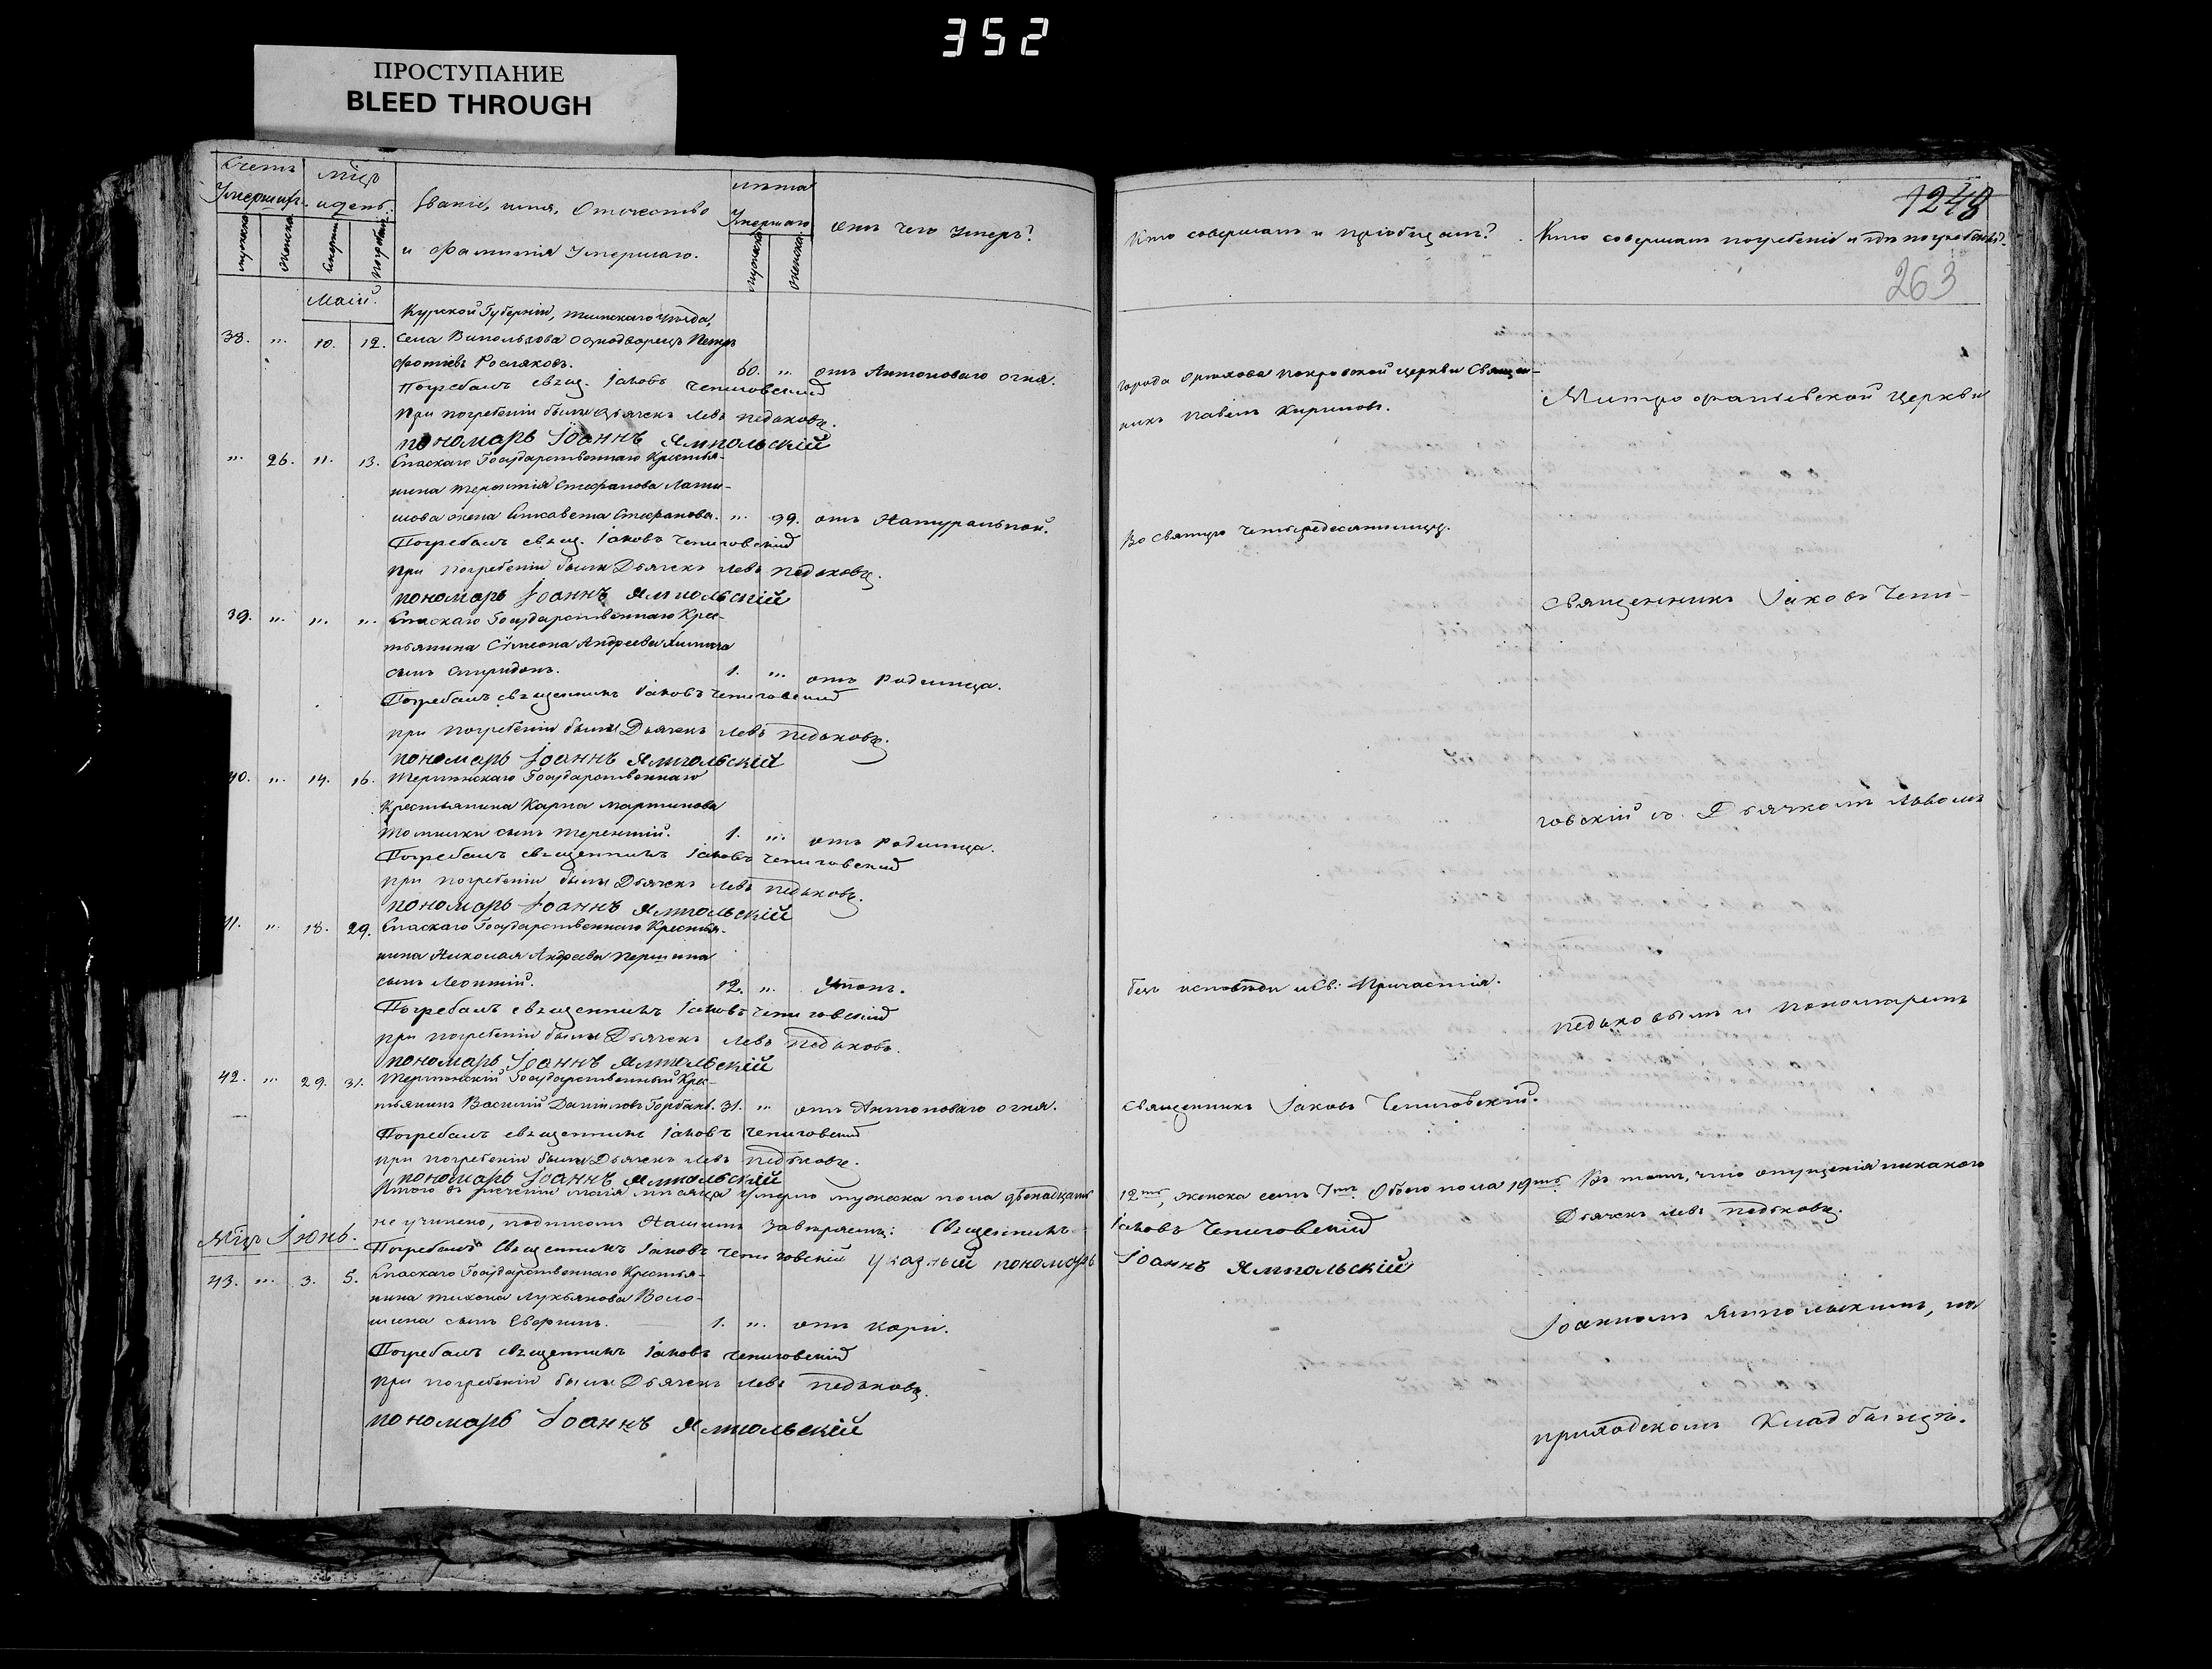 352
ПРОСТУПАНИЕ
BLEED THROUGH
Счетъ Умершихъ.
мужска
женска
Мцъ и день.
смерти
погребен:
Званіе, имя, Отчество
и Фамилія Умершаго.
лѣта Умершаго
мужска
женска
Отъ чего умеръ?
Маій.
Курской Губерніи, Тимскаго уѣзда,
38. „ 10. 12. Села Виполькова однодворецъ Петръ
Фотіевъ Росляковъ. 60. „ отъ Антонова огня.
Погребалъ свящ. Іаковъ Чепиговскій
при погребеніи были Дьячекъ Левъ Педьковъ.
пономарь Іоаннъ Ямпольскій
„ 26. 11. 13. Спаскаго Государственнаго Крестья-
нина Терентія Стефанова Лати-
шова жена Елисавета Стефанова. „ 99. отъ Натуральной.
Погребалъ свящ. Іаковъ Чепиговскій
при погребеніи были Дьячекъ Левъ Педьковъ.
пономарь Іоаннъ Ямпольскій
39. „ „ „ Спаскаго Государственнаго Крес-
тьянина Сѵмеона Андреева
сынъ Спиридонъ. 1. „ отъ Родимца.
Погребалъ священникъ Іаковъ Чепиговскій
при погребеніи были Дьячекъ Левъ Педьковъ.
пономарь Іоаннъ Ямпольскій
40. „ 14. 16. Государственнаго
Крестьянина Карпа Мартинова
Томилки сынъ Терентій. 1. „ отъ Родимца.
Погребалъ священникъ Іаковъ Чепиговскій
при погребеніи были Дьячекъ Левъ Педьковъ.
пономарь Іоаннъ Ямпольскій
41. „ 18. 29. Спаскаго Государственнаго Крестья-
нина Николая Андреева Першина
сынъ Леонтій. 12. „ Утопъ.
Погребалъ священникъ Іаковъ Чепиговскій
при погребеніи были Дьячекъ Левъ Педьковъ.
пономарь Іоаннъ Ямпольскій
42. „ 29. 31. Государственный Крес-
тьянинъ Василій Даніиловъ Горбань. 31. „ отъ Антонова огня.
Погребалъ священникъ Іаковъ Чепиговскій
при погребеніи были Дьячекъ Левъ Педьковъ.
пономарь Іоаннъ Ямпольскій
Итого въ теченіи маія мѣсяца умерло мужеска пола двенадцать
не учинено, подписомъ Нашимъ завѣряемъ: Священникъ
Мцъ Іюнь.
Погребалъ Священникъ Іаковъ Чепиговскій указный пономарь
43. „ 3. 5. Спаскаго Государственнаго Крестья-
нина Тихона Лукьянова Воло-
шина сынъ Евфимъ. 1. „ отъ кори.
Погребалъ священникъ Іаковъ Чепиговскій
при погребеніи были Дьячекъ Левъ Педьковъ.
пономарь Іоаннъ Ямпольскій
1248
263
Кто совершалъ и пріобщалъ?
Кто совершалъ погребеніе и гдѣ погребены?
города Орѣхова Покровской церкви Священ-
никъ Павелъ Кириловъ.
Митрофаніевской Церкви
Во святую Четыредесятницу.
Священникъ Іаковъ Чепи-
говскій съ Дьячкомъ Львомъ
безъ исповѣди и Св: Причастія.
Педьковымъ и пономаремъ
Священникъ Іаковъ Чепиговскій.
12ть, женска семь 7мь. Обоего пола 19ть. Въ томъ, что опущенія никакого
Дьячекъ Левъ Педьковъ.
Іаковъ Чепиговскій
Іоаннъ Ямпольскій
Іоанномъ Ямпольскимъ, на
приходскомъ Кладбищѣ.